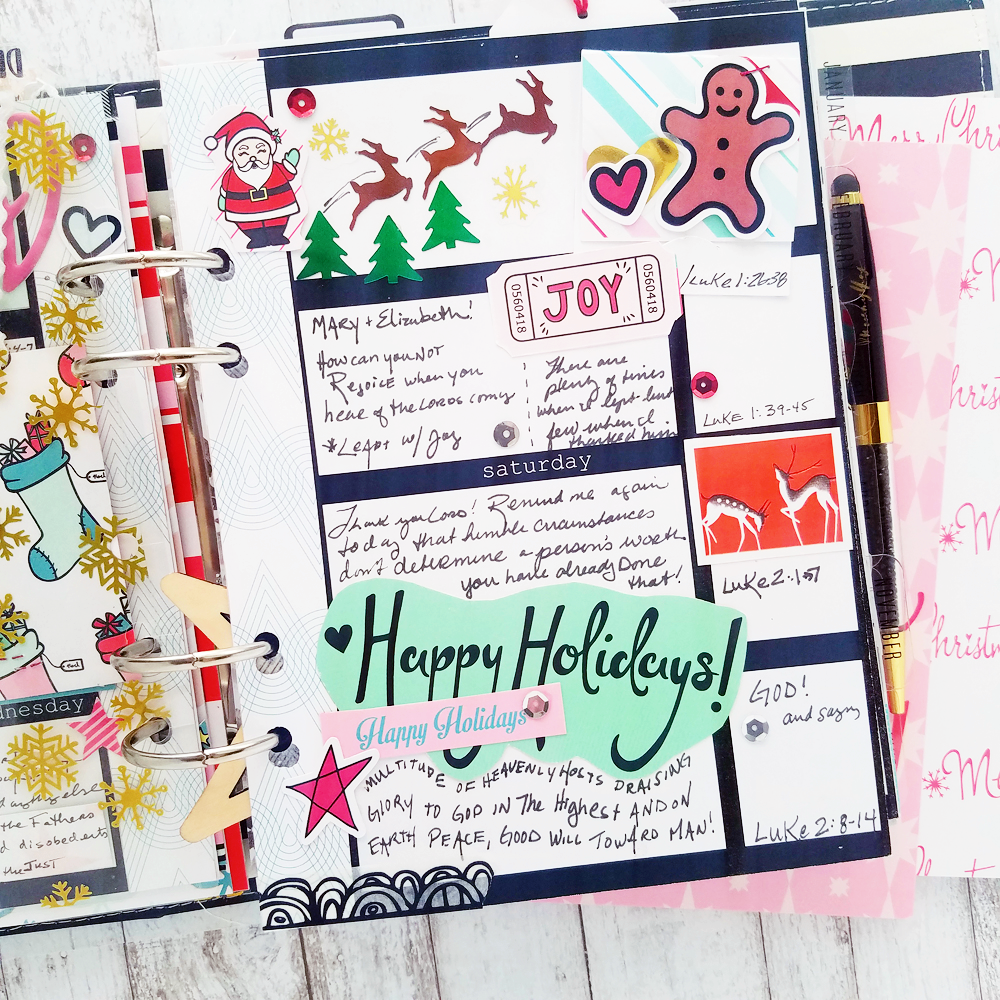 JANUARY
Merry Chris
0560418
JOY
0560418
Luke 1:26-38
MARY + Elizabeth!
How can you NOT
Rejoice when you
hear of the LORDS coming
*Leapt w/ Joy
There are
plenty of times
when I
few when I
thanked him
Luke 1:39-45
saturday
Thank you Lord! Remind me again
today that humble circumstances
don't determine a person's worth
you have already Done
that!
Luke 2:1-57
Happy Holidays!
Happy Holidays
MULTITUDE OF HEAVENLY HOSTS PRAISING
GLORY TO GOD IN The Highest AND ON
EARTH PEACE, GOOD WILL TOWARD MAN!
GOD!
and saying
Luke 2:8-14
dnesday
the Fathers
d disobedients
the Just
NOVEMBER
Christm